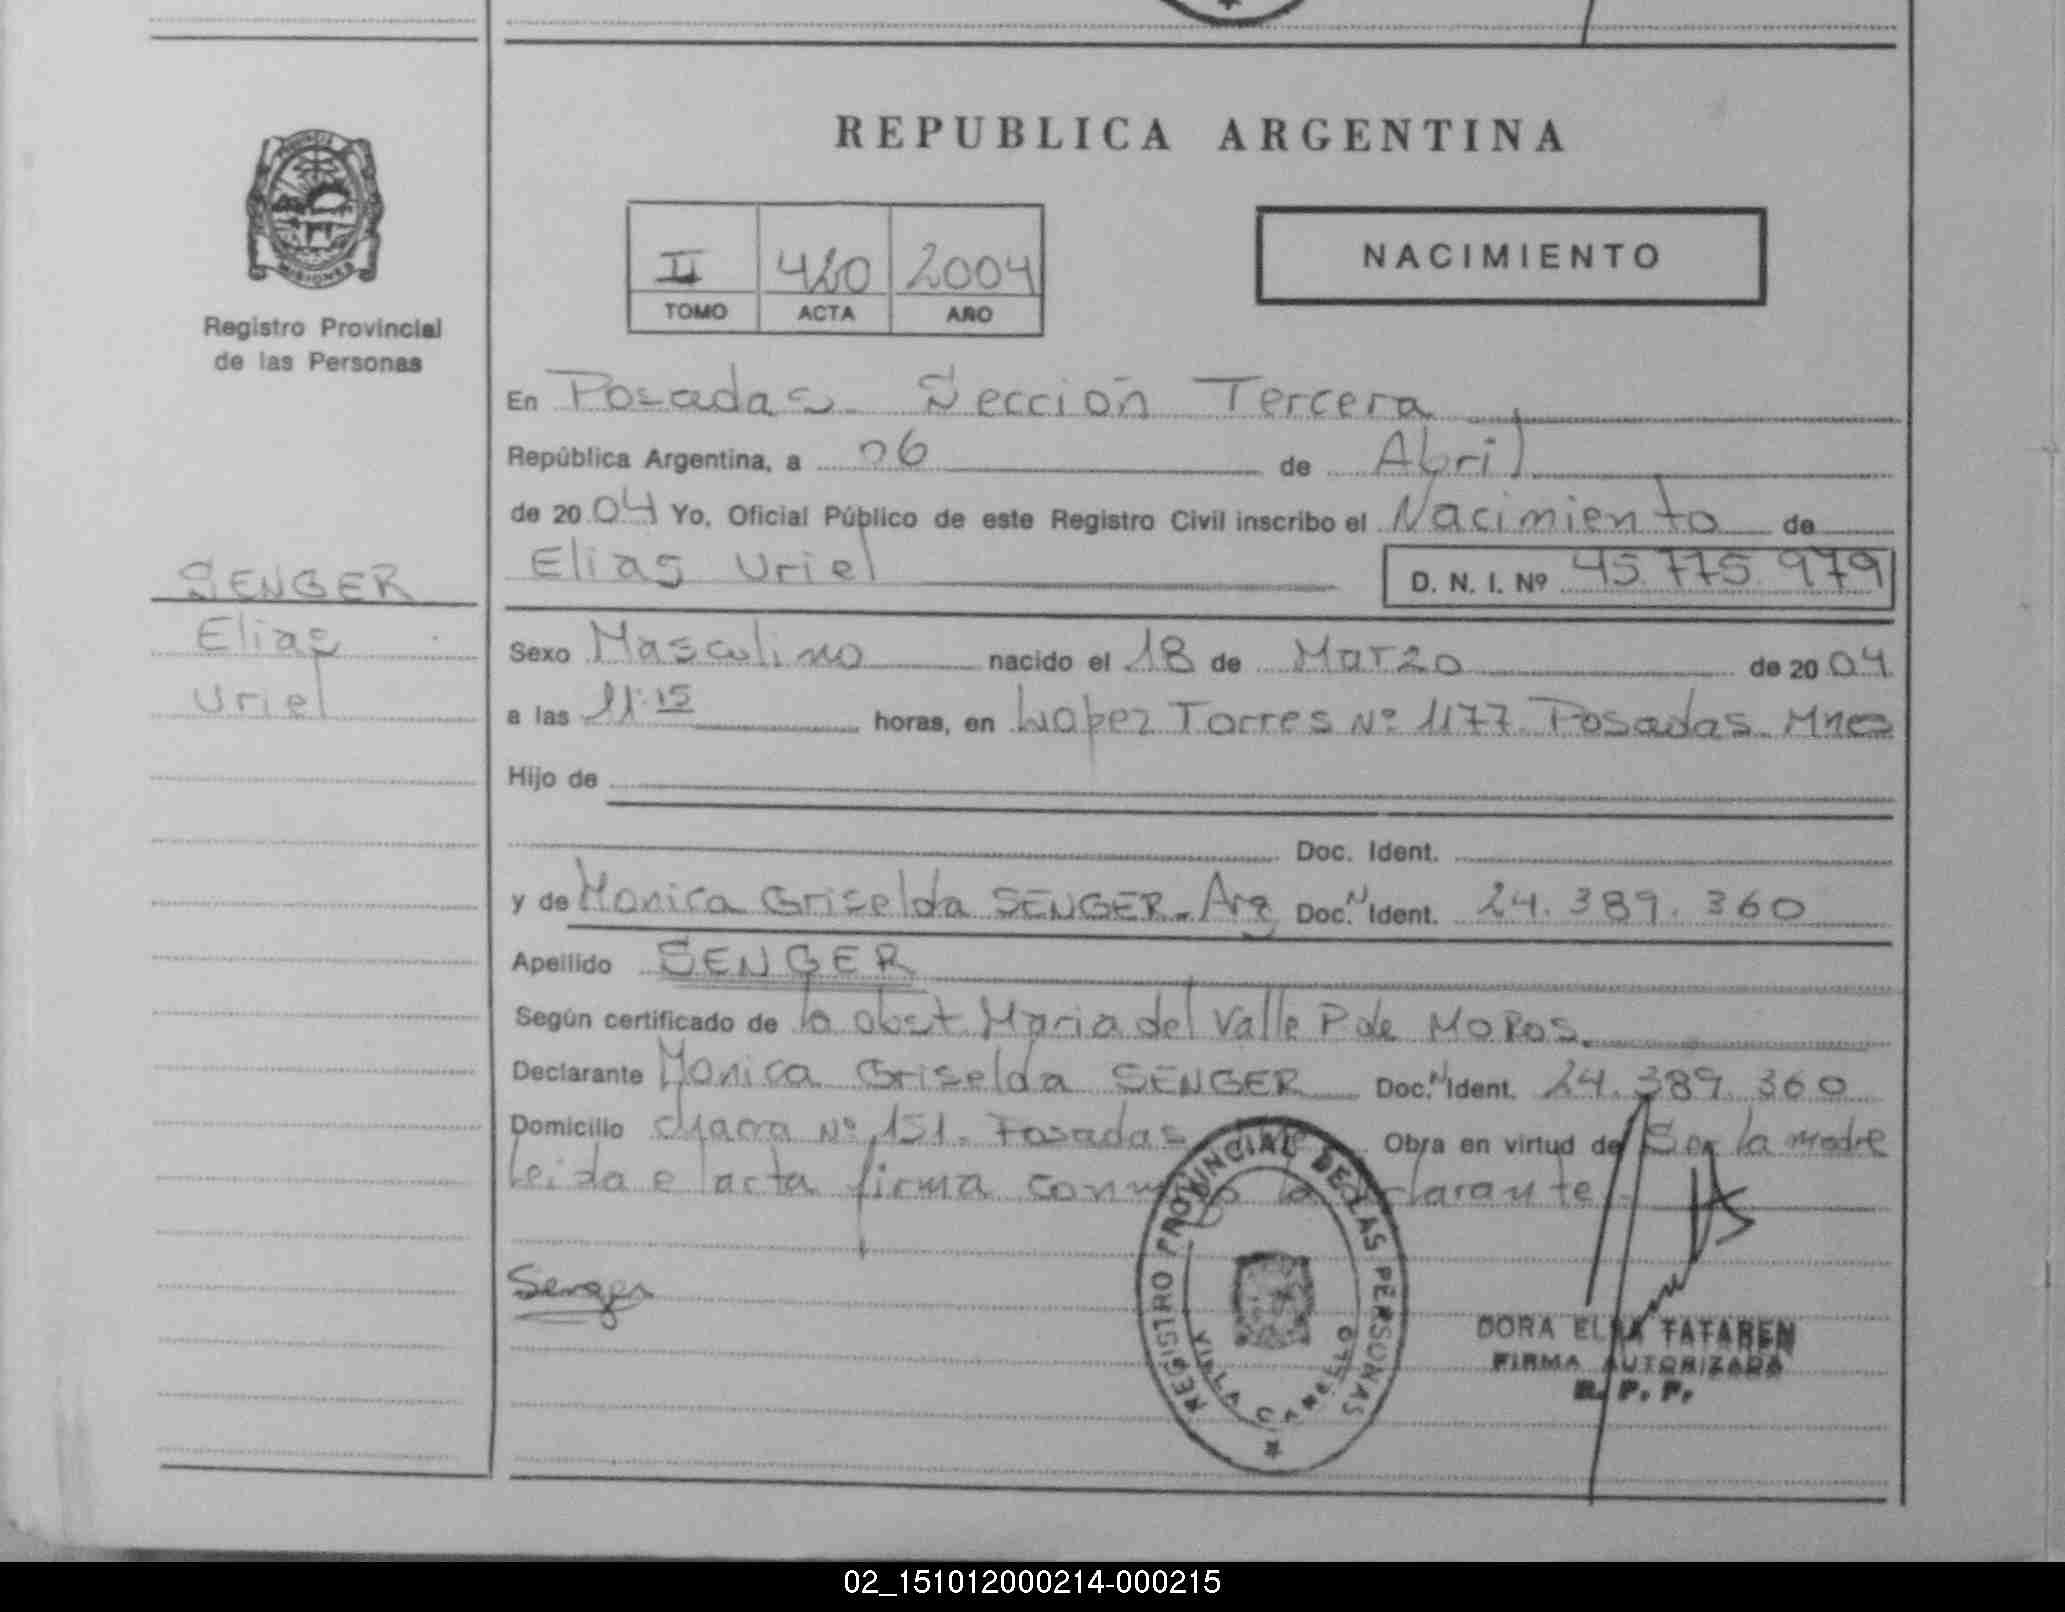 REPUBLICA ARGENTINA
NACIMIENTO
II 420 2004
TOMO ACTA AÑO
Registro Provincial
de las Personas
En Posadas. Sección Tercera
República Argentina, a 06 de Abril
de 2004 Yo, Oficial Público de este Registro Civil inscribo el Nacimiento de
Elias Uriel D. N. I. Nº 45.775.979
SENGER
Elias
Uriel
Sexo Masculino nacido el 18 de Marzo de 2004
a las 11:15 horas, en Lopez Torres Nº 1177. Posadas. Mnes
Hijo de
Doc. Ident.
y de Monica Griselda SENGER. Arg Doc. N Ident. 24.389.360
Apellido SENGER
Según certificado de la obst. Maria del Valle P de MOROS.
Declarante Monica Griselda SENGER Doc. N Ident. 24.389.360
Domicilio chacra Nº 151. Posadas Obra en virtud de Ser la madre
Leida el acta firma la
Senger
REGISTRO PROVINCIAL DE LAS PERSONAS
VILLA
DORA ELBA TATAREN
FIRMA AUTORIZADA
R. P. P.
02_151012000214-000215